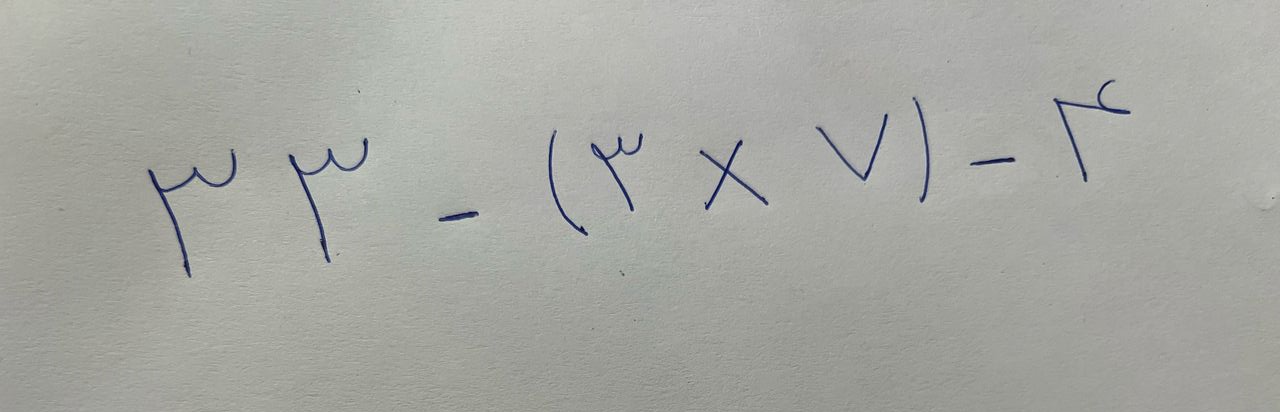 ۳۳ - (۳ × ۷) - ۴